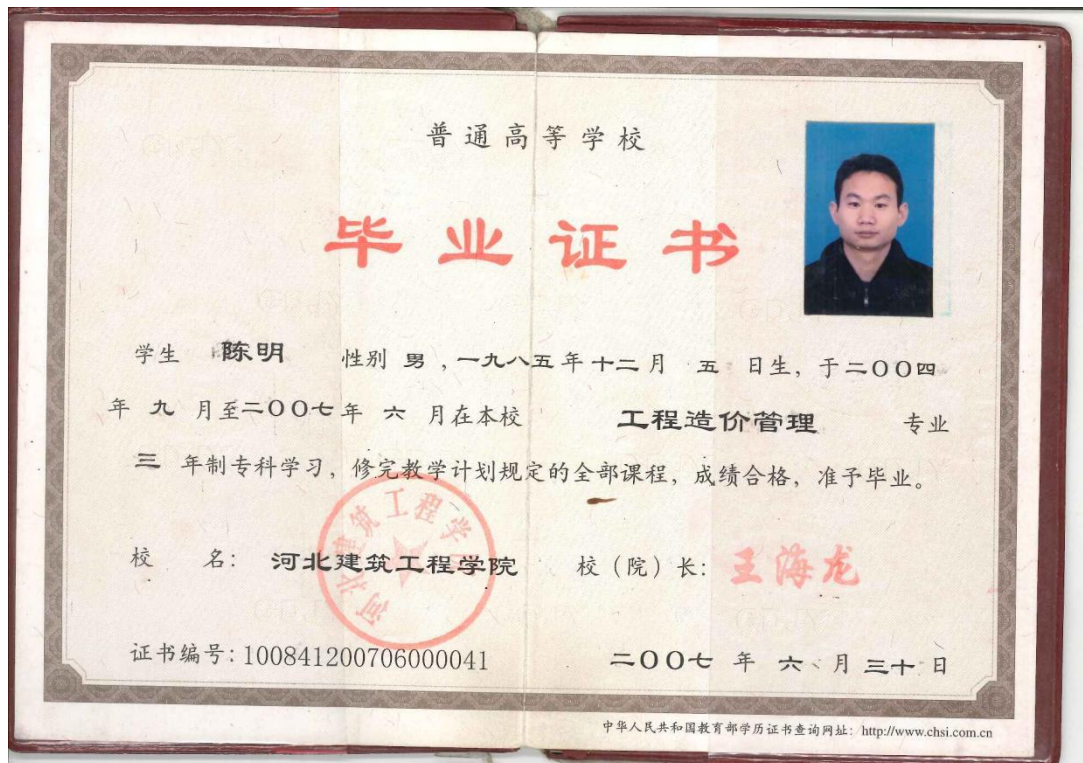 普通高等学校
毕业证书
学生 陈明 性别 男 ,一九八五年十二月 五 日生, 于二〇〇四
年 九 月至二〇〇七年 六 月在本校 工程造价管理 专业
三 年制专科学习, 修完教学计划规定的全部课程, 成绩合格, 准予毕业。
河北建筑工程学院
校 名: 河北建筑工程学院 校 (院) 长: 王海龙
证书编号: 100841200706000041 二〇〇七 年 六 月 三十 日
中华人民共和国教育部学历证书查询网址: http://www.chsi.com.cn